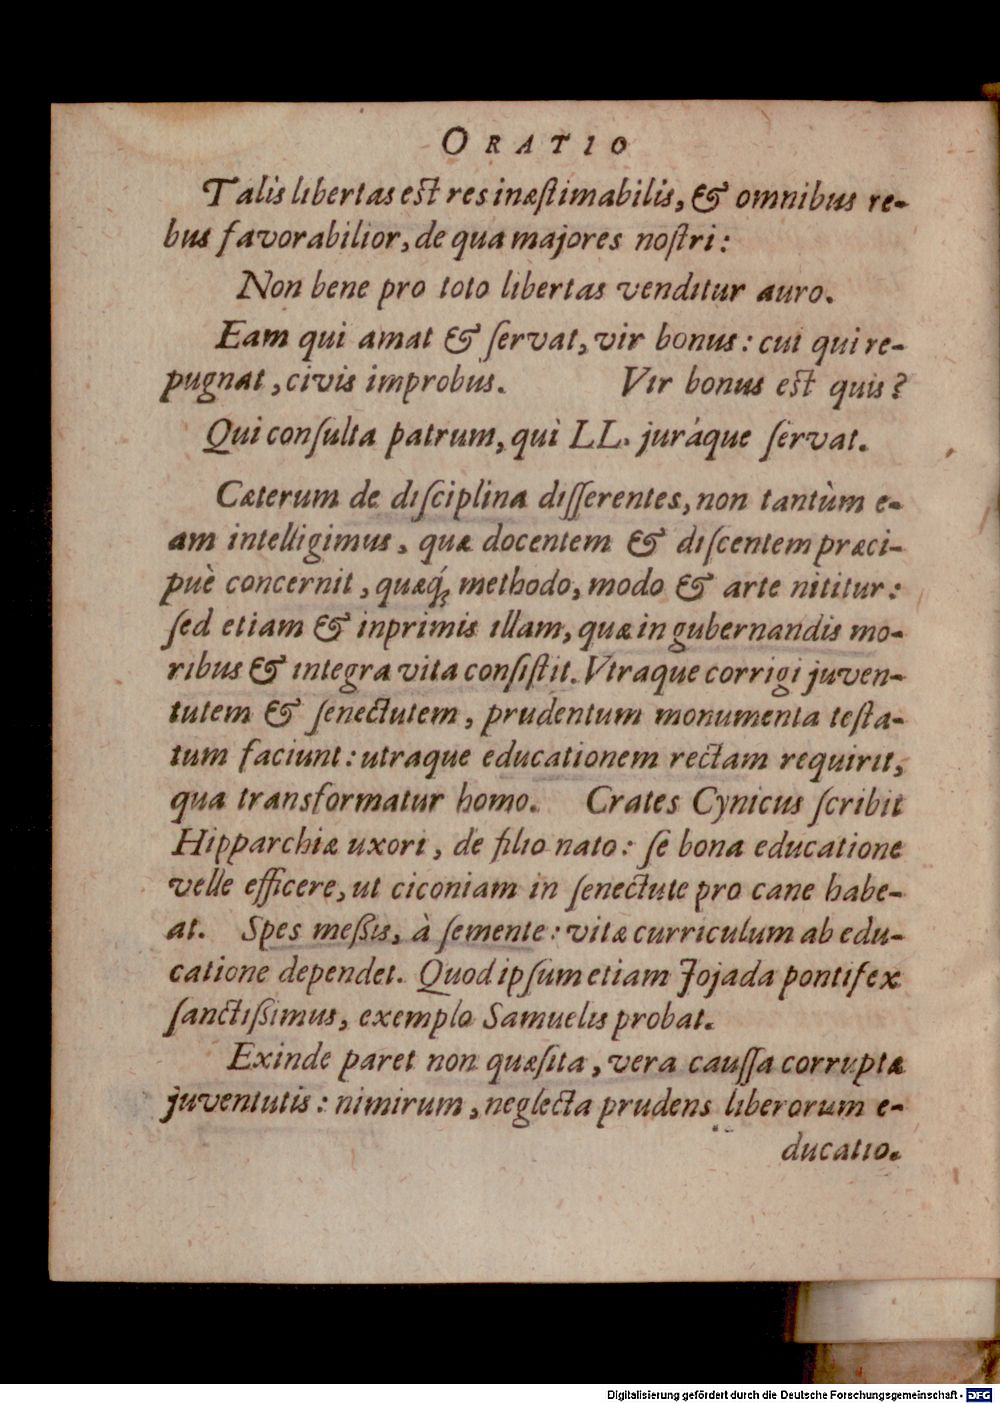 ORATIO
Talis libertas est res inæſtimabilis, & omnibus re-
bus favorabilior, de qua majores noſtri:
Non bene pro toto libertas venditur auro.
Eam qui amat & ſervat, vir bonus: cui qui re-
pugnat, civis improbus. Vir bonus est quis?
Qui conſulta patrum, qui LL. juráque ſervat.
Cæterum de diſciplina diſſerentes, non tantùm e-
am intelligimus, quæ docentem & diſcentem præci-
puè concernit, quæq́; methodo, modo & arte nititur:
ſed etiam & inprimis illam, quæ in gubernandis mo-
ribus & integra vita conſiſtit. Vtraque corrigi juven-
tutem & ſenectutem, prudentum monumenta teſta-
tum faciunt: utraque educationem rectam requirit,
qua transformatur homo. Crates Cynicus ſcribit
Hipparchiæ uxori, de filio nato: ſe bona educatione
velle efficere, ut ciconiam in ſenectute pro cane habe-
at. Spes meſsis, à ſemente: vitæ curriculum ab edu-
catione dependet. Quod ipſum etiam Jojada pontifex
ſanctiſsimus, exemplo Samuelis probat.
Exinde paret non quæſita, vera cauſſa corruptæ
juventutis: nimirum, neglecta prudens liberorum e-
ducatio.
Digitalisierung gefördert durch die Deutsche Forschungsgemeinschaft - DFG